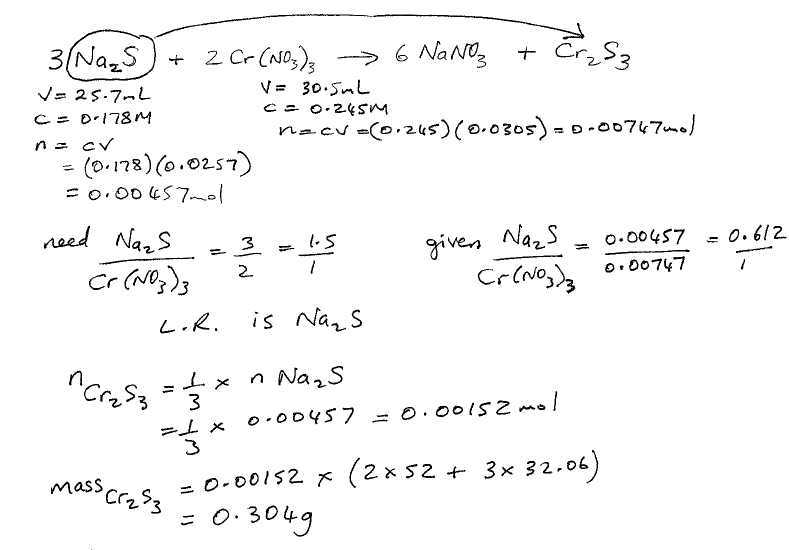 3 Na₂S + 2 Cr(NO₃)₃ → 6 NaNO₃ + Cr₂S₃
V = 25.7mL
C = 0.178M
n = cv
= (0.178)(0.0257)
= 0.00457mol
V = 30.5mL
C = 0.245M
n = cv = (0.245)(0.0305) = 0.00747mol
need Na₂S / Cr(NO₃)₃ = 3/2 = 1.5/1
given Na₂S / Cr(NO₃)₃ = 0.00457/0.00747 = 0.612/1
L.R. is Na₂S
n Cr₂S₃ = 1/3 × n Na₂S
= 1/3 × 0.00457 = 0.00152 mol
mass Cr₂S₃ = 0.00152 × (2×52 + 3×32.06)
= 0.304g